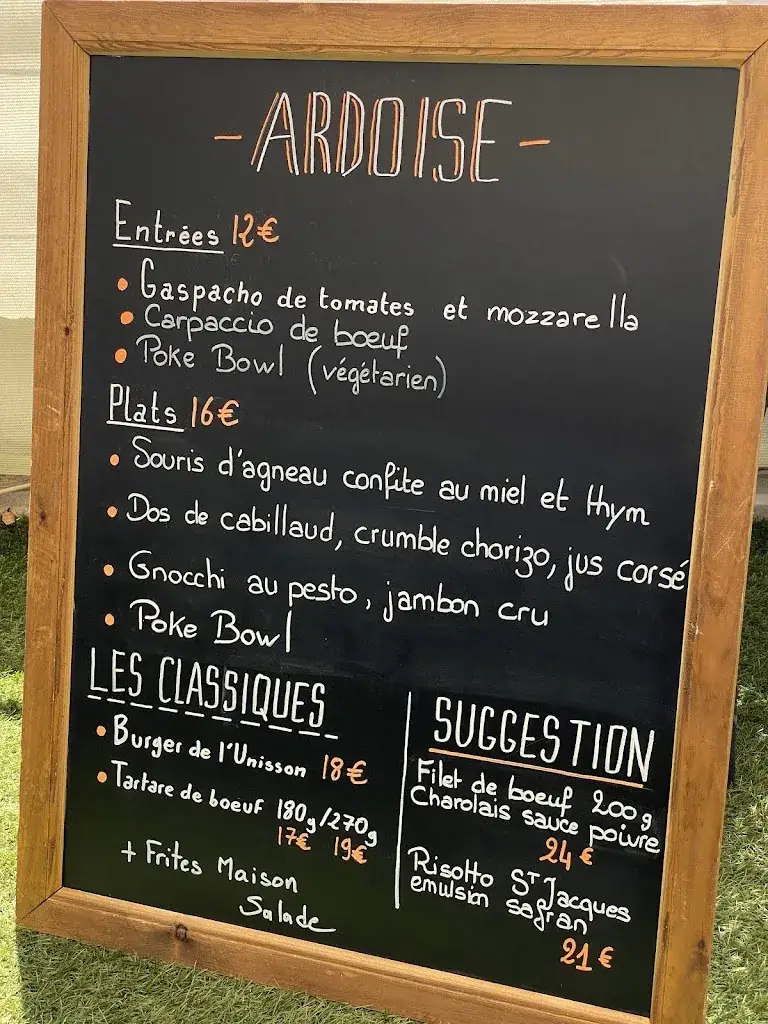 - ARDOISE -
Entrées 12€
• Gaspacho de tomates et mozzarella
• Carpaccio de boeuf
• Poke Bowl (végétarien)
Plats 16€
• Souris d'agneau confite au miel et thym
• Dos de cabillaud, crumble chorizo, jus corsé
• Gnocchi au pesto, jambon cru
• Poke Bowl
LES CLASSIQUES
• Burger de l'Unisson 18€
• Tartare de boeuf 180g/270g
17€ 19€
+ Frites Maison
Salade
SUGGESTION
Filet de boeuf 200g
Charolais sauce poivre
24€
Risotto ST Jacques
emulsin safran
21€